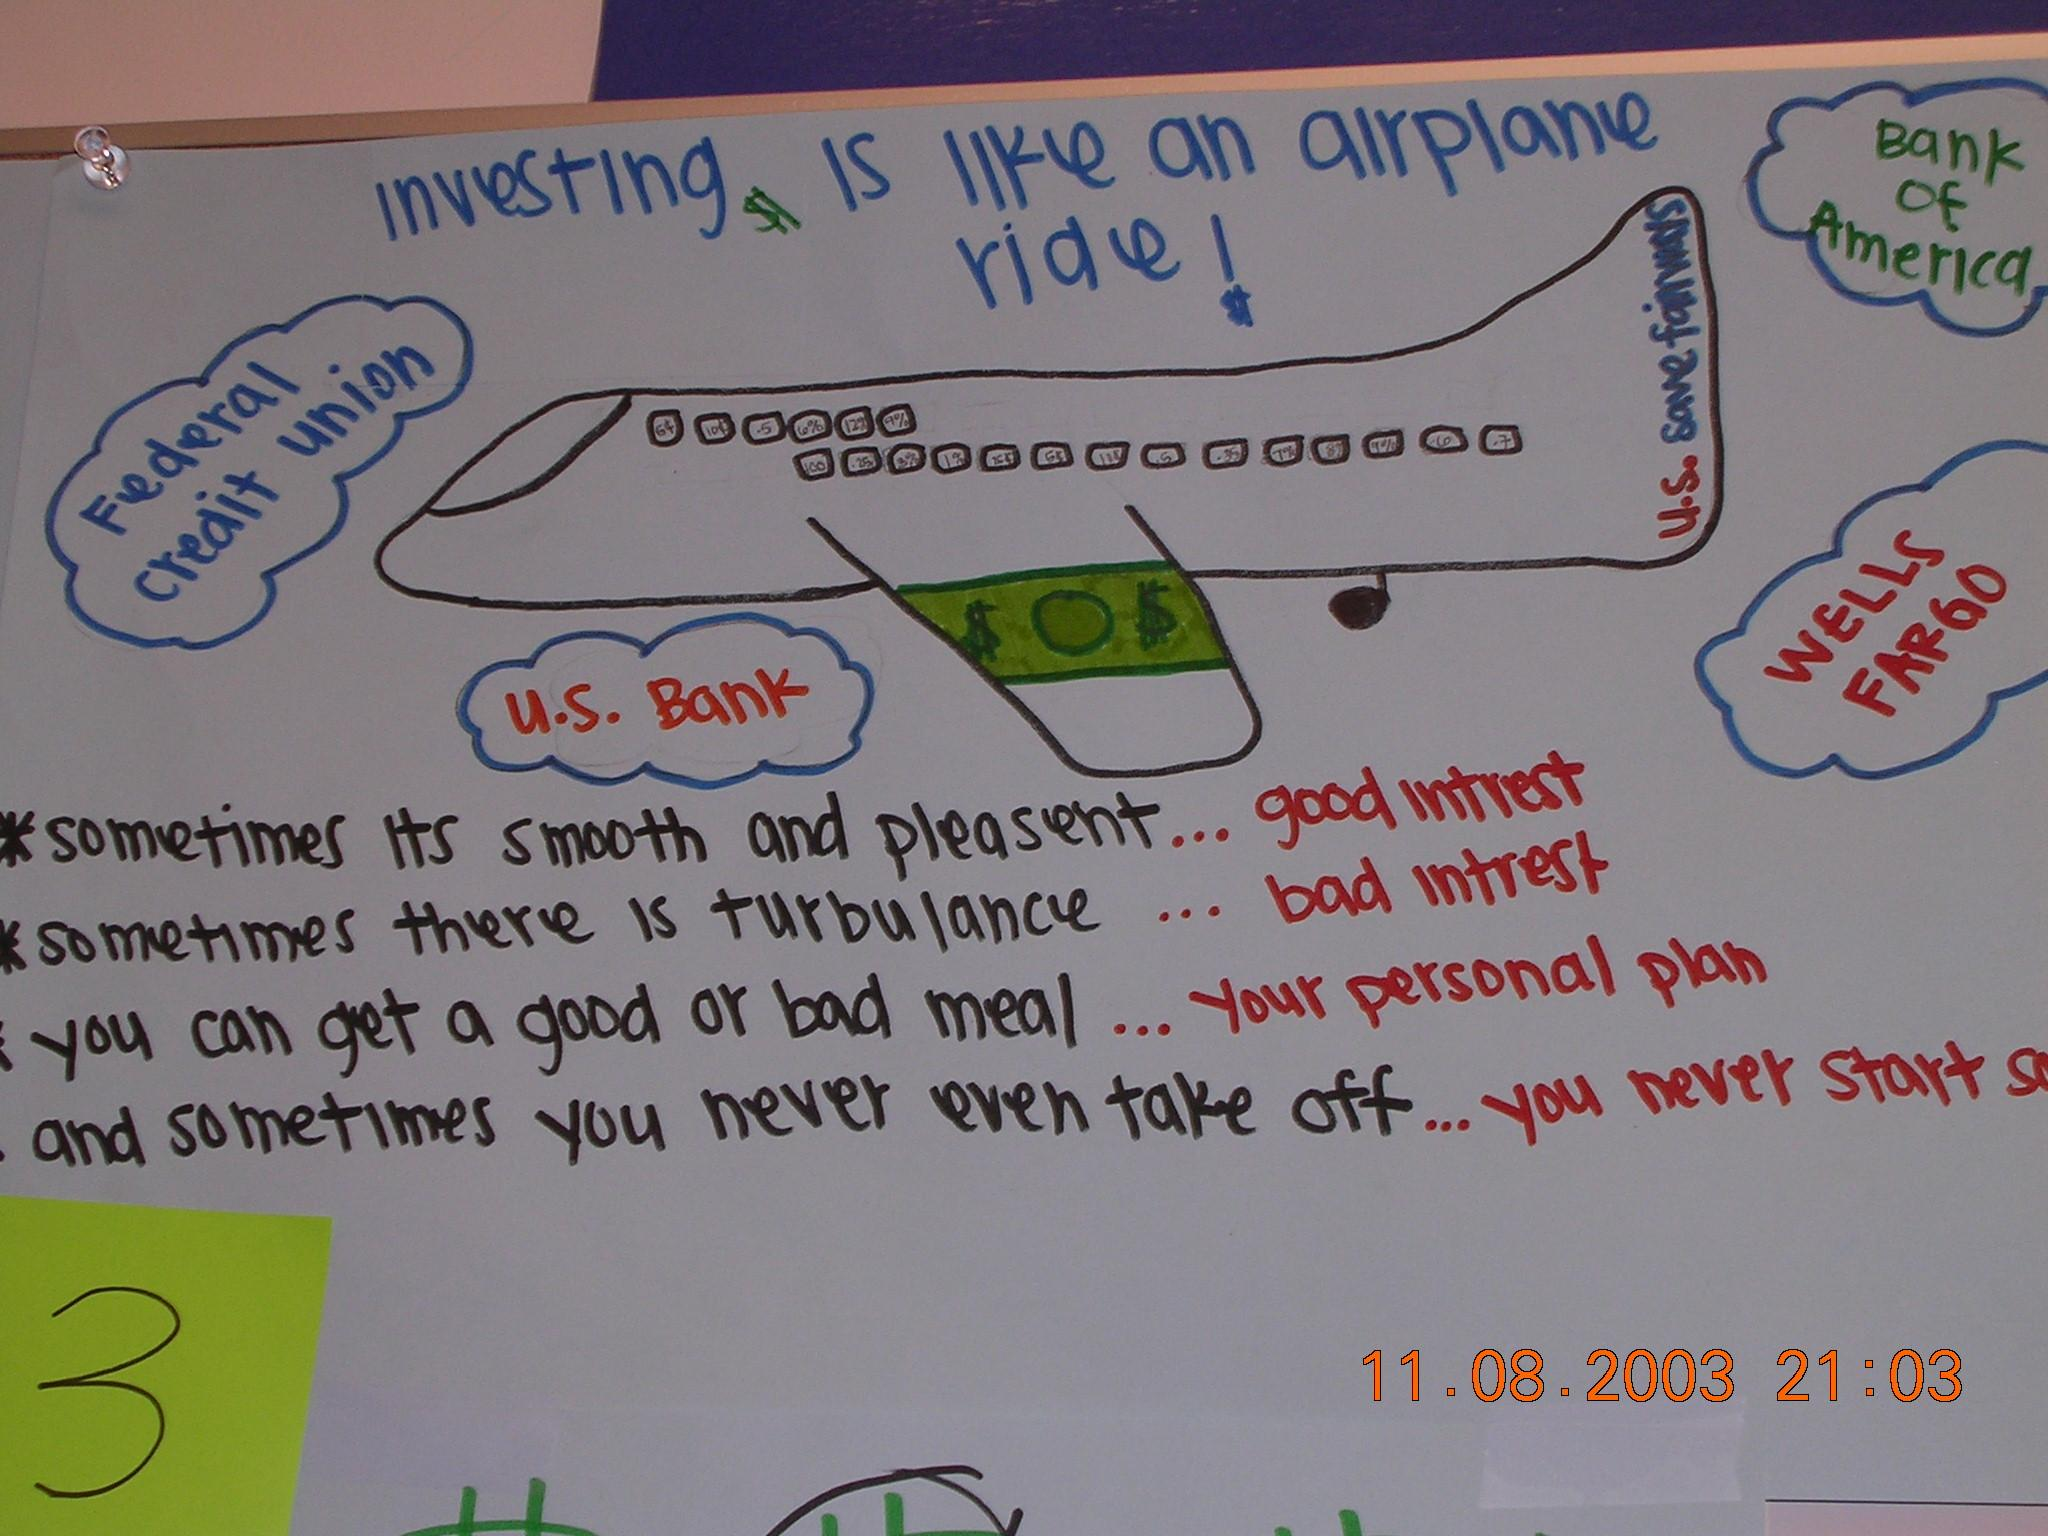 investing $ is like an airplane
ride!
Bank
of
America
Federal
credit union
U.S.
WELLS
FARGO
$ $
U.S. Bank
*sometimes its smooth and pleasent... good intrest
*sometimes there is turbulance ... bad intrest
you can get a good or bad meal ... your personal plan
and sometimes you never even take off... you never start
3
11.08.2003 21:03